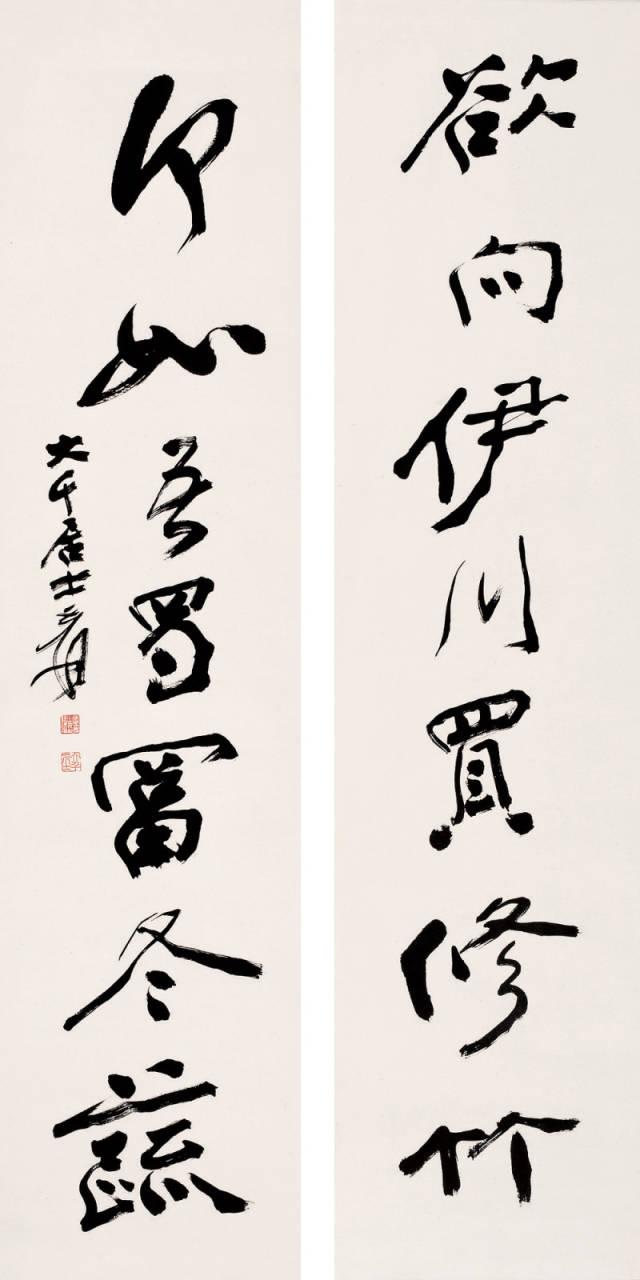 欲向伊川買修竹
何如吾蜀富冬蔬
大千居士爰